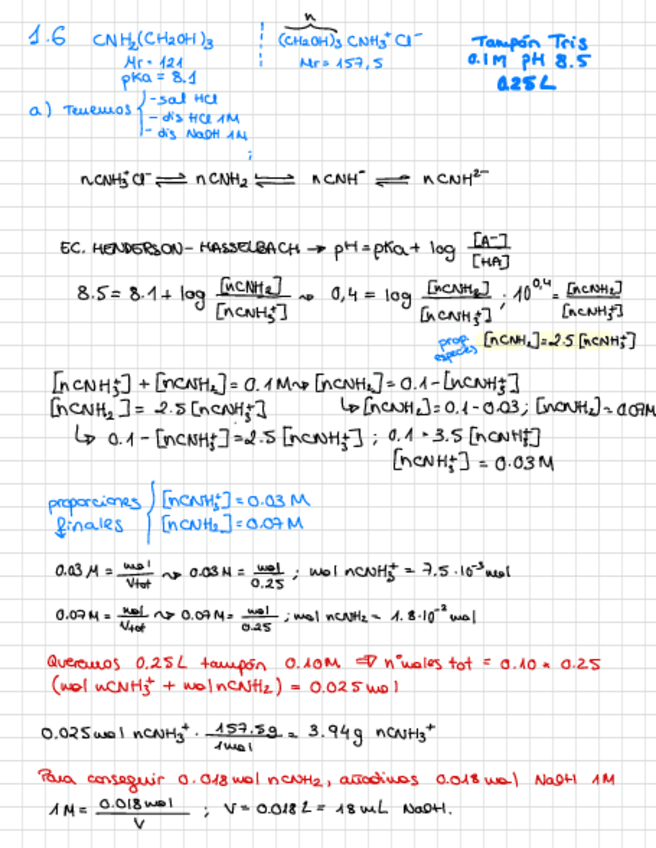 1.6 CNH₂(CH₂OH)₃ (CH₂OH)₃ CNH₃⁺ Cl⁻ Tampón Tris
n
Mr = 121 Mr = 157,5 0.1M pH 8.5
pKa = 8.1 0.25L
a) Tenemos { - sal HCl
- dis HCl 1M
- dis NaOH 1M
;
nCNH₃⁺Cl⁻ ⇌ nCNH₂ ⇌ nCNH⁻ ⇌ nCNH²⁻
EC. HENDERSON - HASSELBACH → pH = pKa + log [A⁻]/[HA]
8.5 = 8.1 + log [nCNH₂]/[nCNH₃⁺] ⇝ 0,4 = log [nCNH₂]/[nCNH₃⁺] ; 10^0,4 = [nCNH₂]/[nCNH₃⁺]
prop. especies [nCNH₂] = 2.5 [nCNH₃⁺]
[nCNH₃⁺] + [nCNH₂] = 0.1M ⇝ [nCNH₂] = 0.1 - [nCNH₃⁺]
[nCNH₂] = 2.5 [nCNH₃⁺] ↳ [nCNH₂] = 0.1 - 0.03 ; [nCNH₂] = 0.07M
↳ 0.1 - [nCNH₃⁺] = 2.5 [nCNH₃⁺] ; 0.1 = 3.5 [nCNH₃⁺]
[nCNH₃⁺] = 0.03 M
proporciones { [nCNH₃⁺] = 0.03 M
finales [nCNH₂] = 0.07 M
0.03 M = mol/Vtot ⇝ 0.03 M = mol/0.25 ; mol nCNH₃⁺ = 7.5 · 10⁻³ mol
0.07 M = mol/Vtot ⇝ 0.07 M = mol/0.25 ; mol nCNH₂ = 1.8 · 10⁻² mol
Queremos 0,25L tampón 0.10M ⇒ nº moles tot = 0.10 × 0.25
(mol nCNH₃⁺ + mol nCNH₂) = 0.025 mol
0.025 mol nCNH₃⁺ · 157.5g/1mol = 3.94 g nCNH₃⁺
Para conseguir 0.018 mol nCNH₂, añadimos 0.018 mol NaOH 1M
1M = 0.018 mol/V ; V = 0.018 L = 18 mL NaOH.